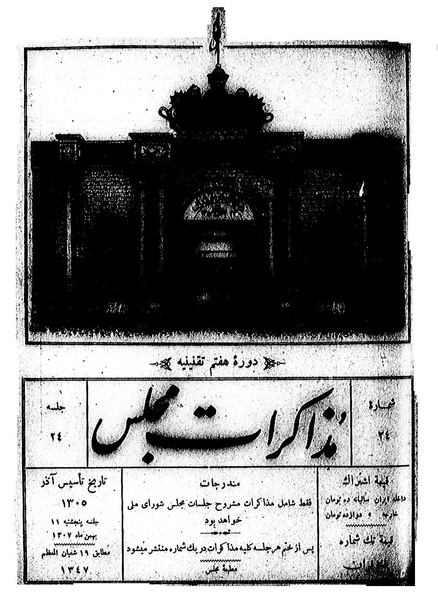 دورهٔ هفتم تقنینیه
شمارهٔ
۲۴
مذاکرات مجلس
جلسه
۲۴
قیمة اشتراك
داخله ایران سالیانه ده تومان
خارجه » دوازده تومان
قیمة تك شماره
مندرجات
فقط شامل مذاکرات مشروح جلسات مجلس شورای ملی
خواهد بود
پس از ختم هر جلسه کلیه مذاکرات در یك شماره منتشر میشود
مطبعهٔ مجلس
تاریخ تأسیس آذر
۱۳۰۵
جلسه پنجشنبه ۱۱
بهمن ماه ۱۳۰۷
مطابق ۱۹ شعبان المعظم
۱۳۴۷